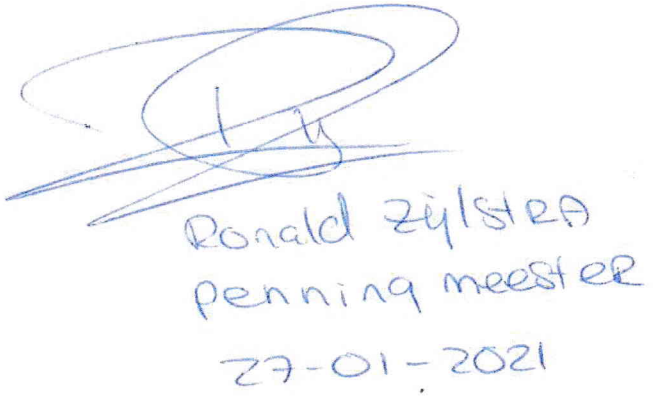 Ronald Zijlstra
penning meester
27-01-2021